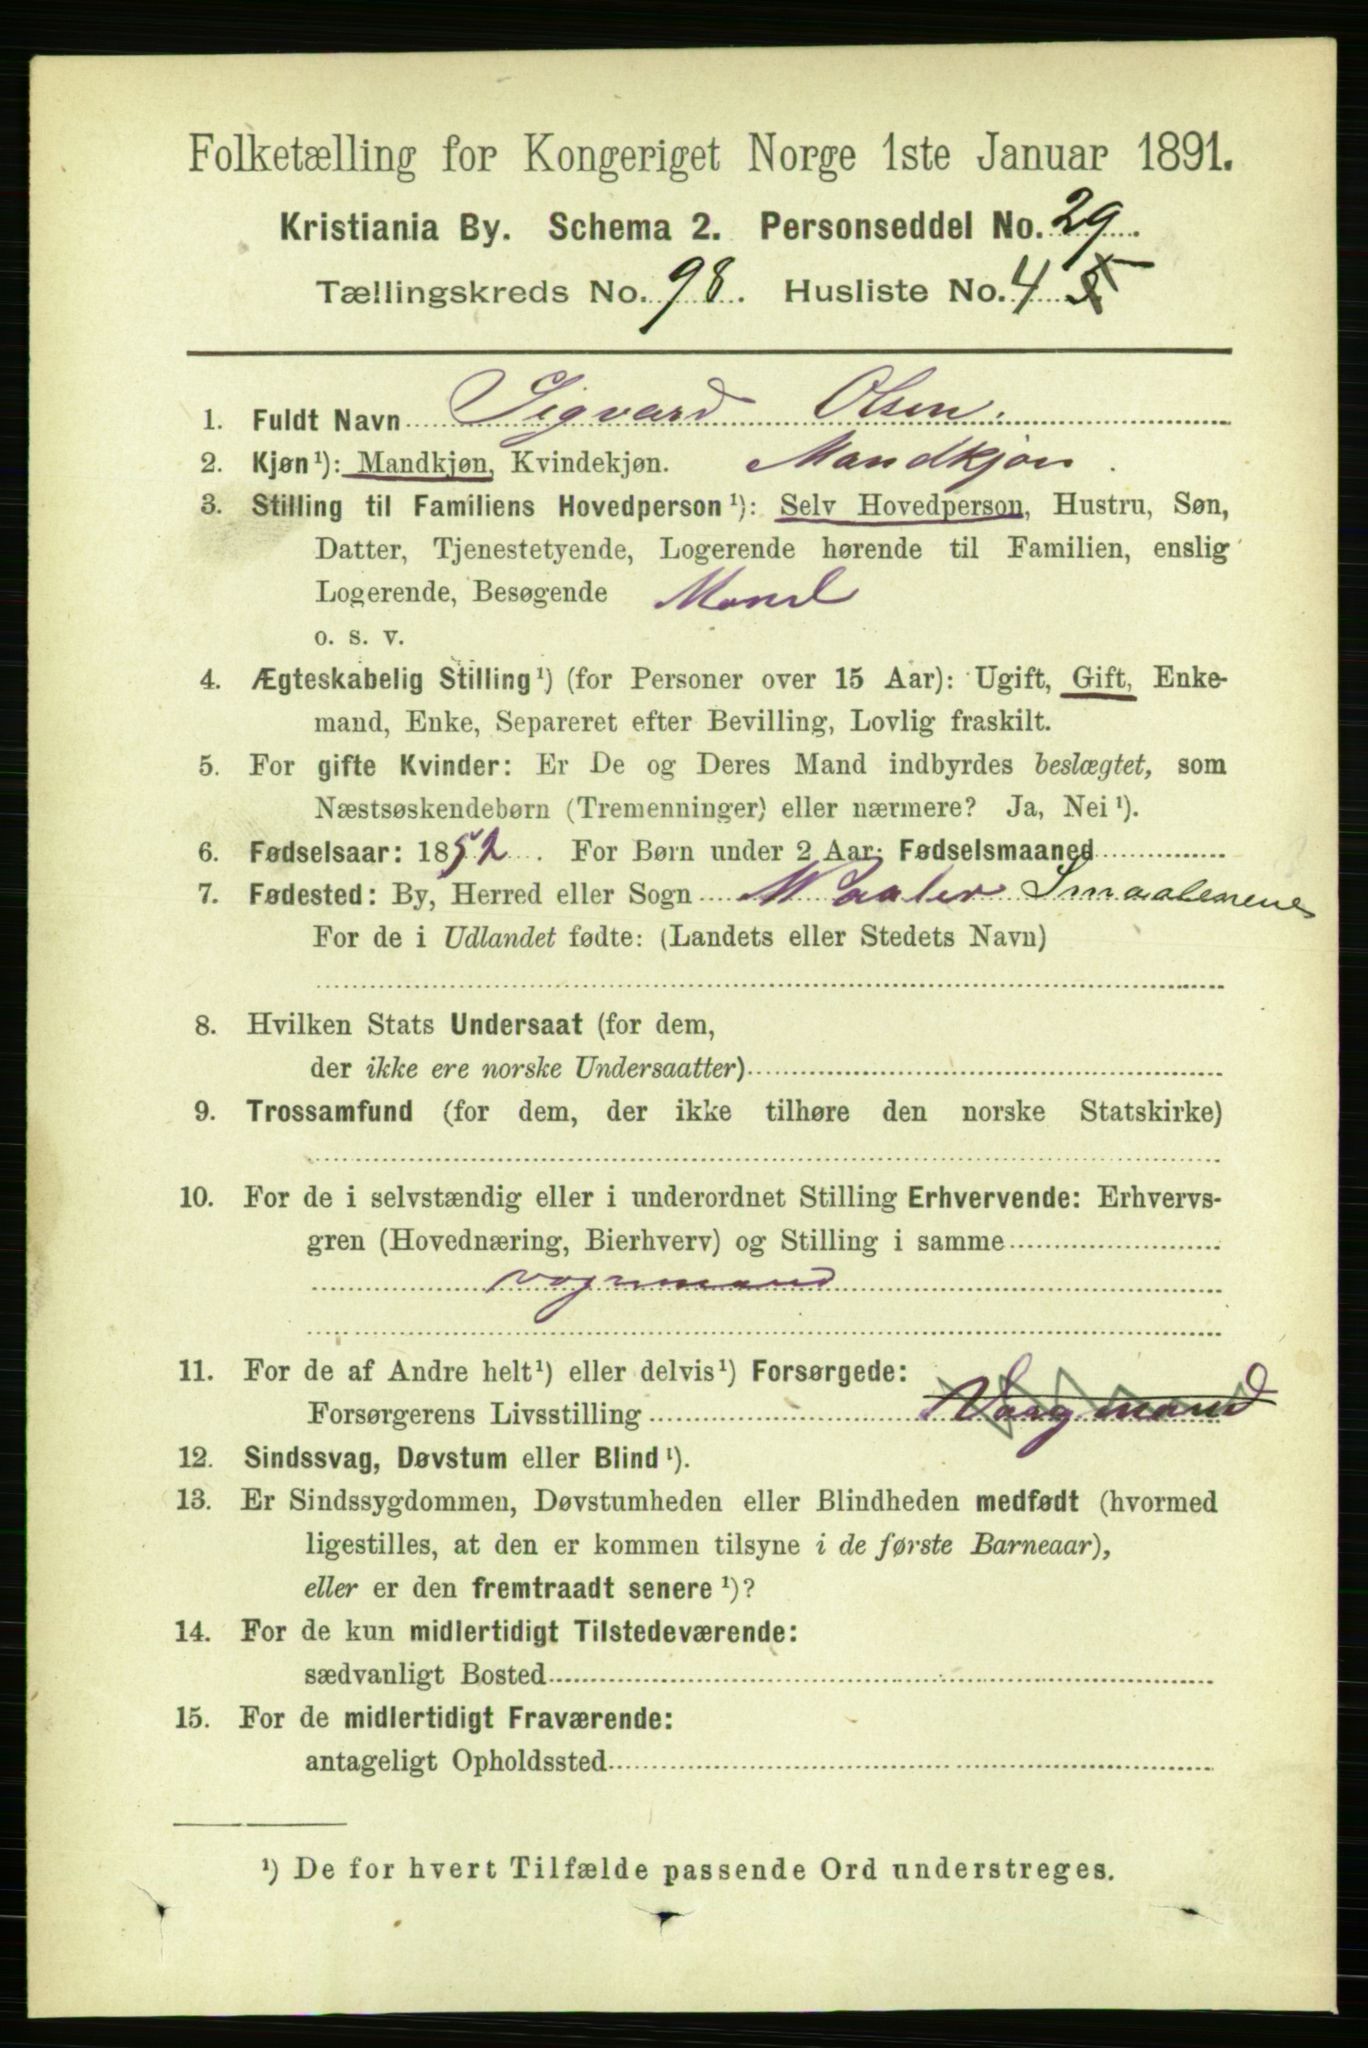 Folketælling for Kongeriget Norge 1ste Januar 1891.
Kristiania By. Schema 2. Personseddel No. 29.
Tællingskreds No. 98. Husliste No. 4
1. Fuldt Navn Sigvard Olsen.
2. Kjøn¹): Mandkjøn, Kvindekjøn. Mandkjøn.
3. Stilling til Familiens Hovedperson¹): Selv Hovedperson, Hustru, Søn,
Datter, Tjenestetyende, Logerende hørende til Familien, enslig
Logerende, Besøgende Mand
o. s. v.
4. Ægteskabelig Stilling¹) (for Personer over 15 Aar): Ugift, Gift, Enke-
mand, Enke, Separeret efter Bevilling, Lovlig fraskilt.
5. For gifte Kvinder: Er De og Deres Mand indbyrdes beslægtet, som
Næstsøskendebørn (Tremenninger) eller nærmere? Ja, Nei¹).
6. Fødselsaar: 1852. For Børn under 2 Aar: Fødselsmaaned
7. Fødested: By, Herred eller Sogn Maaler Smaalenene
For de i Udlandet fødte: (Landets eller Stedets Navn)
8. Hvilken Stats Undersaat (for dem,
der ikke ere norske Undersaatter)
9. Trossamfund (for dem, der ikke tilhøre den norske Statskirke)
10. For de i selvstændig eller i underordnet Stilling Erhvervende: Erhvervs-
gren (Hovednæring, Bierhverv) og Stilling i samme
vognmand
11. For de af Andre helt¹) eller delvis¹) Forsørgede:
Forsørgerens Livsstilling
12. Sindssvag, Døvstum eller Blind¹).
13. Er Sindssygdommen, Døvstumheden eller Blindheden medfødt (hvormed
ligestilles, at den er kommen tilsyne i de første Barneaar),
eller er den fremtraadt senere¹)?
14. For de kun midlertidigt Tilstedeværende:
sædvanligt Bosted
15. For de midlertidigt Fraværende:
antageligt Opholdssted
¹) De for hvert Tilfælde passende Ord understreges.